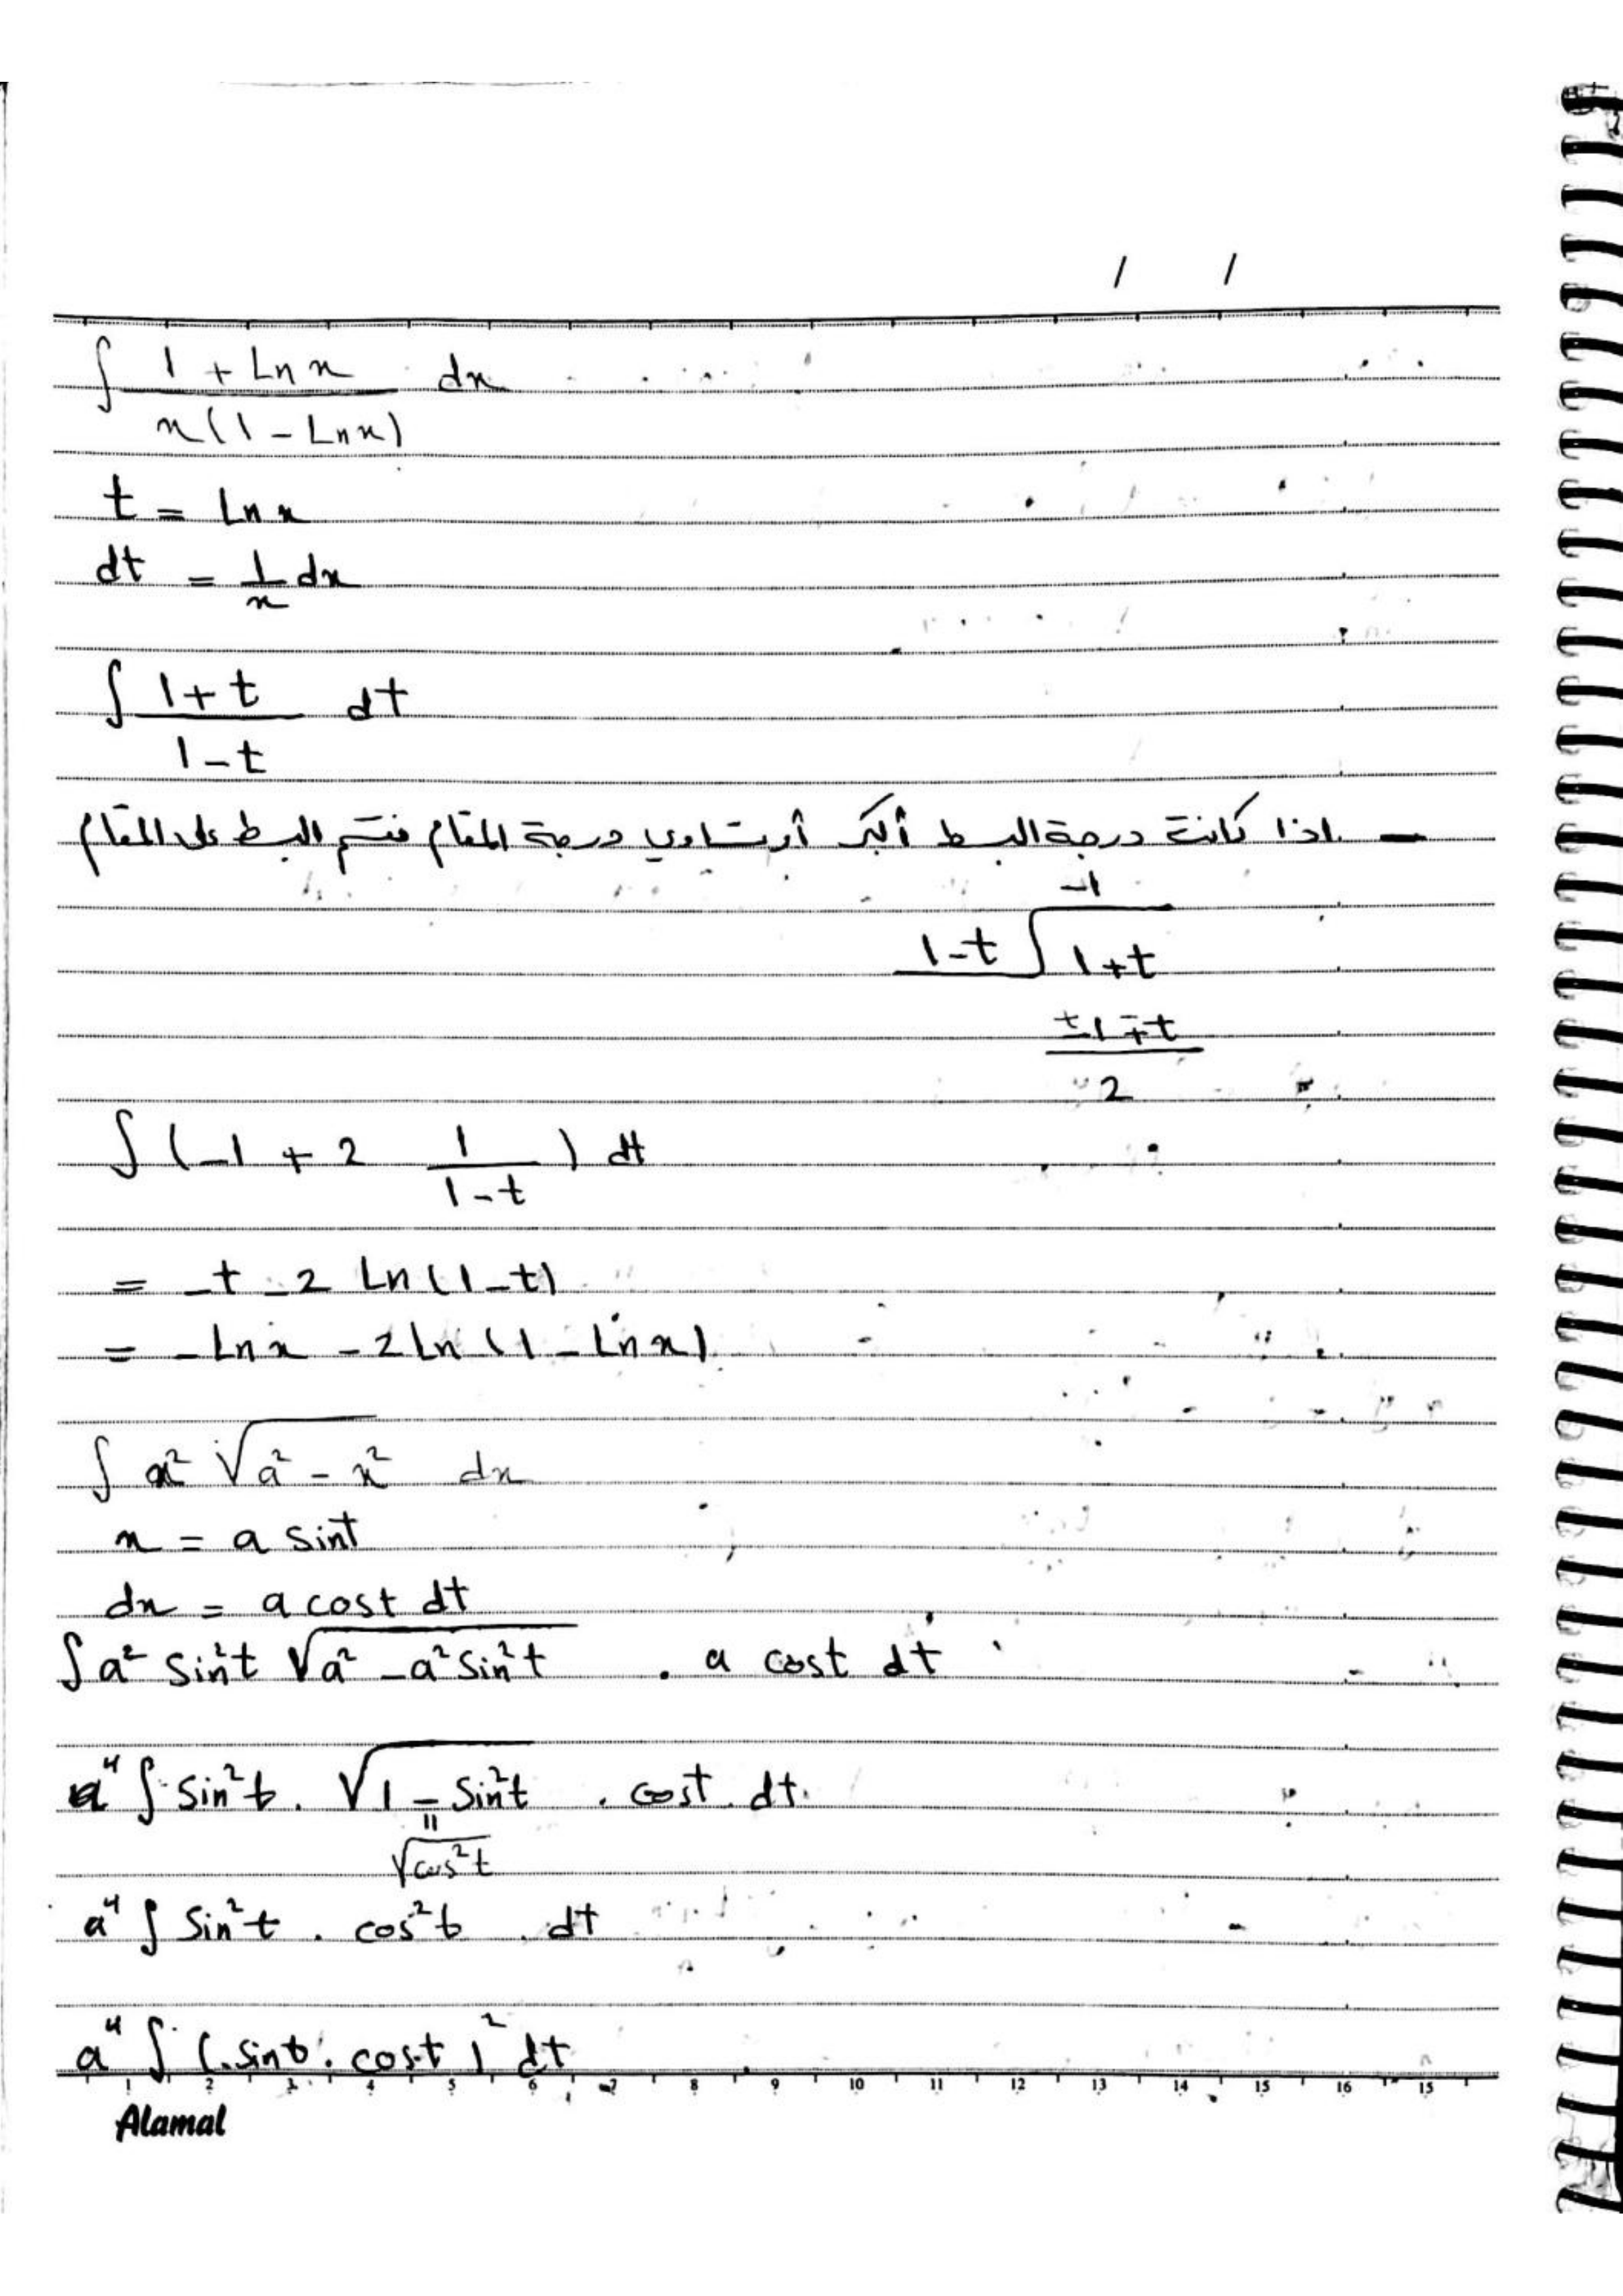 / /
∫ (1 + Ln x) / (x(1 - Ln x)) dx
t = Ln x
dt = 1/x dx
∫ (1+t) / (1-t) dt
- اذا كانت درجة البسط أكبر أو تساوي درجة المقام فنقسم البسط على المقام
-1
1-t √ 1+t
± 1 ∓ t
2
∫ (-1 + 2 1/(1-t)) dt
= -t - 2 Ln (1-t)
= -Ln x - 2 Ln (1 - Ln x)
∫ x² √(a² - x²) dx
x = a sin t
dx = a cos t dt
∫ a² sin² t √(a² - a² sin² t) . a cos t dt
a⁴ ∫ sin² t . √(1 - sin² t) . cos t . dt
=
√(cos² t)
a⁴ ∫ sin² t . cos² t . dt
a⁴ ∫ (sin t . cos t)² dt
1 2 3 4 5 6 7 8 9 10 11 12 13 14 15 16 15
Alamal